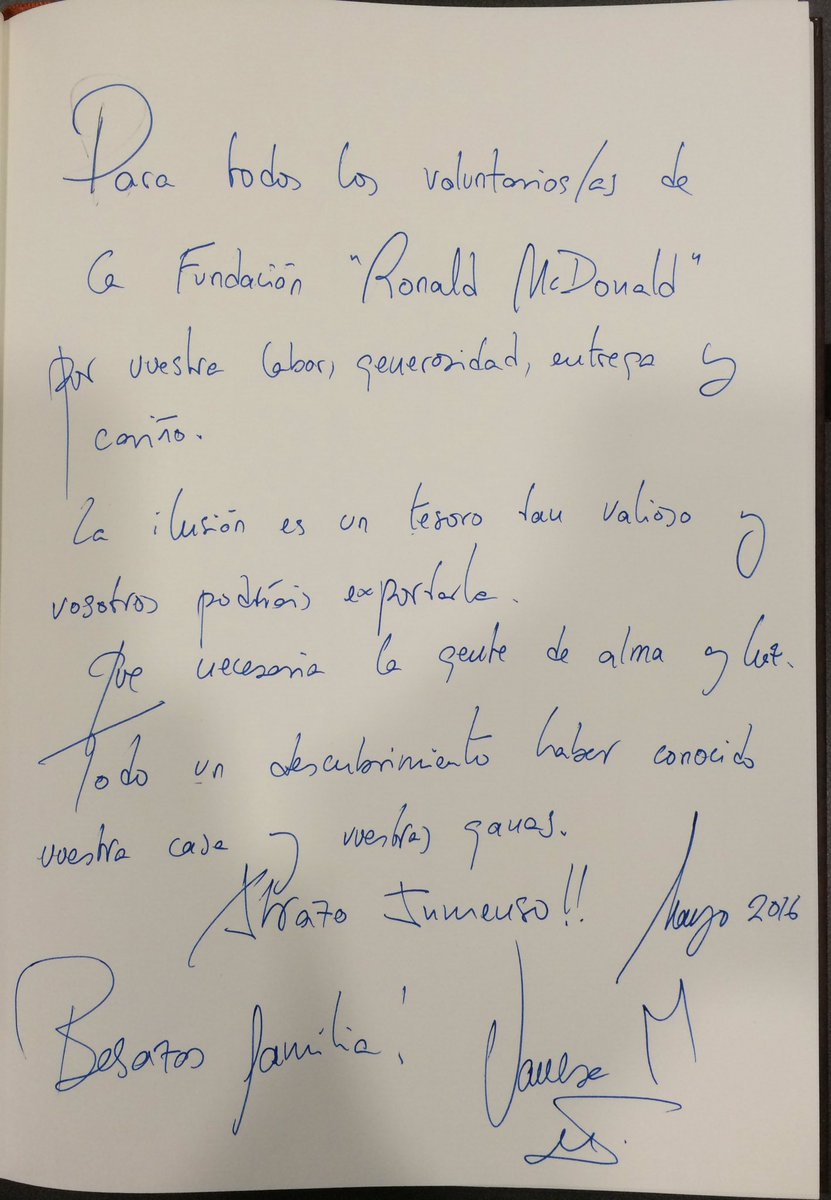 Para todos los voluntarios/as de
la Fundación "Ronald McDonald"
por vuestra labor, generosidad, entrega y
cariño.
La ilusión es un tesoro tan valioso y
vosotros podríais exportarla.
Que necesaria la gente de alma y luz.
Todo un descubrimiento haber conocido
vuestra casa y vuestras ganas.
Abrazo Inmenso!!
Mayo 2016
Besazos familia!
Vanesa M